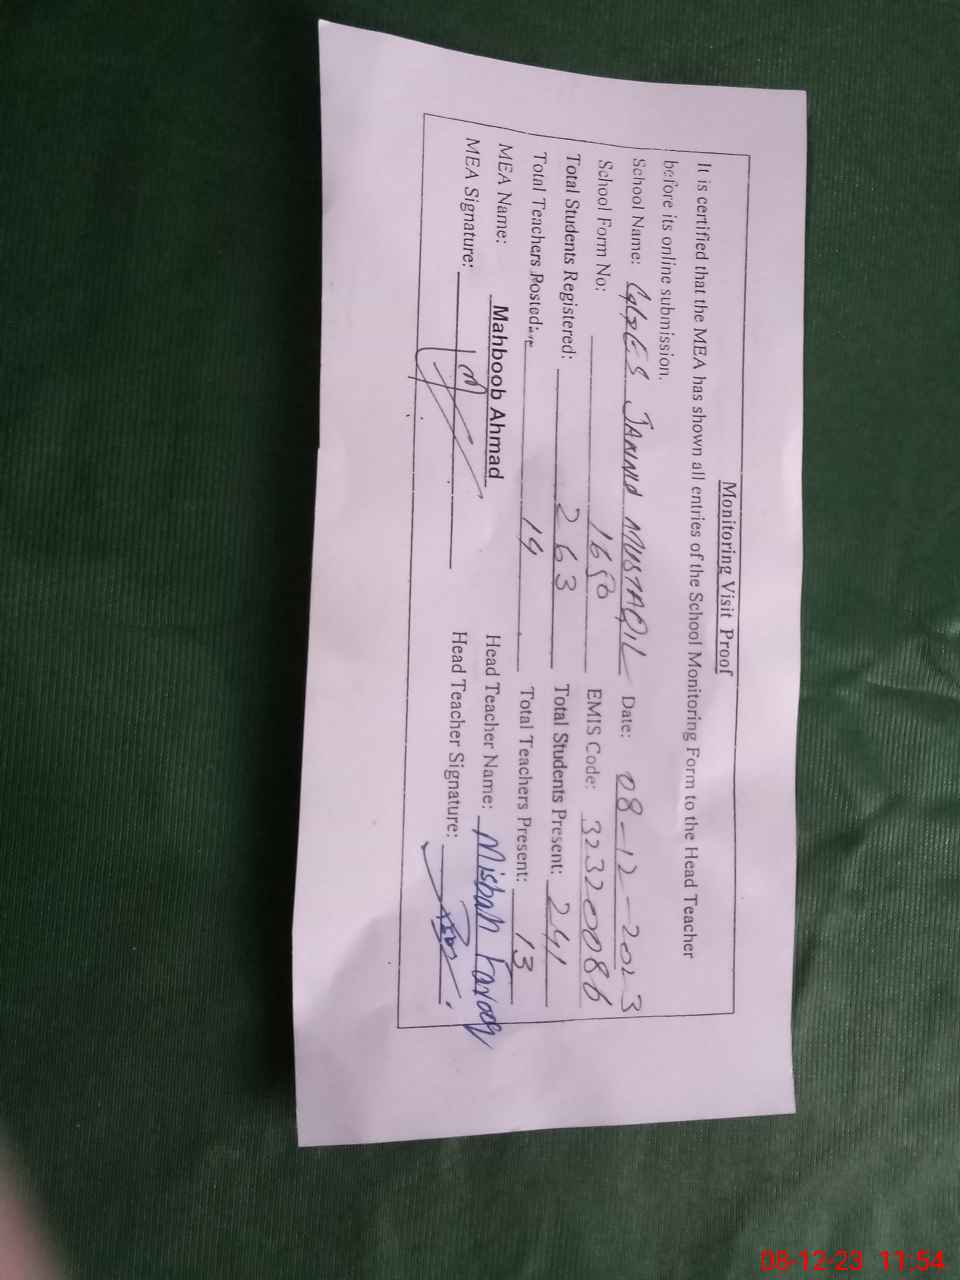 Monitoring Visit Proof
It is certified that the MEA has shown all entries of the School Monitoring Form to the Head Teacher
before its online submission.
School Name: GGES JANNU MUSTAQIL Date: 08-12-2023
School Form No: 1650 EMIS Code: 32320086
Total Students Registered: 263 Total Students Present: 241
Total Teachers Posted: 14 Total Teachers Present: 13
MEA Name: Mahboob Ahmad Head Teacher Name: Misbah Farooq
MEA Signature: Head Teacher Signature:
08-12-23 11:54